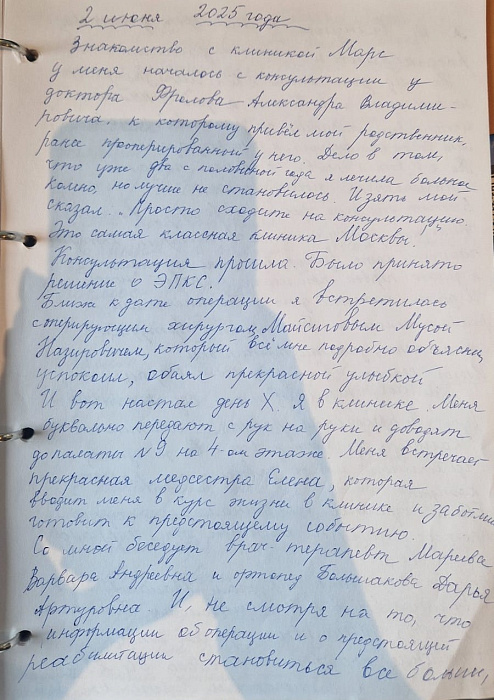 2 июня 2025 года
Знакомство с клиникой Марс
у меня началось с консультации у
доктора Фролова Александра Владими-
ровича, к которому привёл мой родственник,
ранее прооперированный у него. Дело в том,
что уже два с половиной года я лечила больное
колено, но лучше не становилось. И зять мой
сказал: "Просто сходите на консультацию.
Это самая классная клиника Москвы!"
Консультация прошла. Было принято
решение о ЭПКС.
Ближе к дате операции я встретилась
с оперирующим хирургом, Майсиговым Мусой
Назировичем, который всё мне подробно объяснил,
успокоил, обаял прекрасной улыбкой
И вот настал день Х. Я в клинике. Меня
буквально передают с рук на руки и доводят
до палаты №9 на 4-ом этаже. Меня встречает
прекрасная медсестра Елена, которая
вводит меня в курс жизни в клинике и заботливо
готовит к предстоящему событию.
Со мной беседует врач-терапевт Мареева
Варвара Андреевна и ортопед Большакова Дарья
Артуровна. И, не смотря на то, что
информации об операции и о предстоящей
реабилитации становиться все больше,